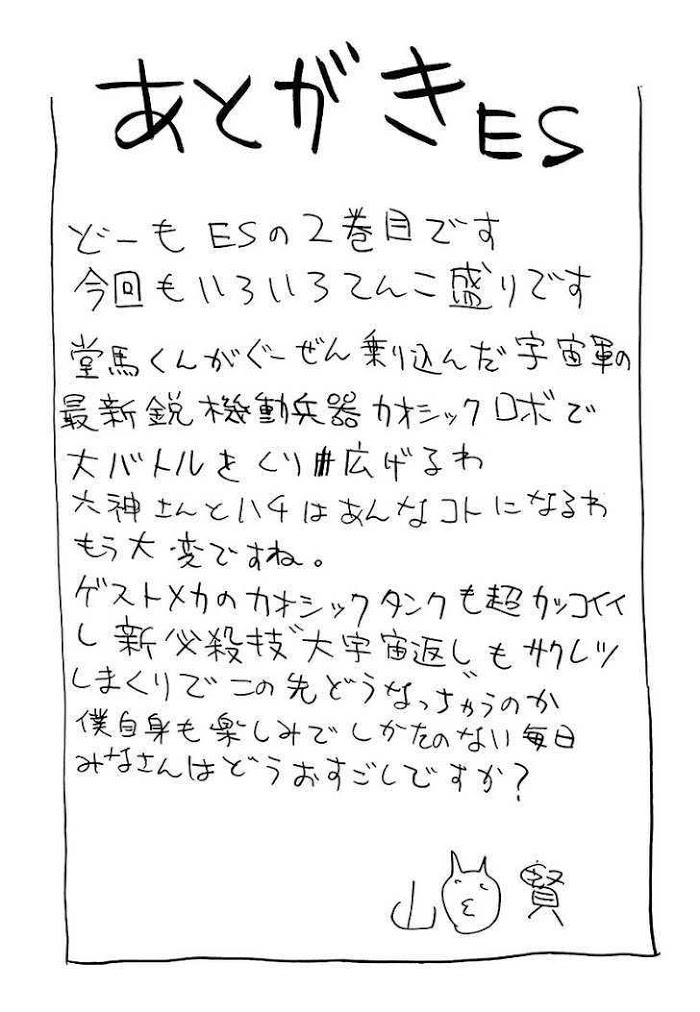 あとがきES
どーも ESの2巻目です
今回もいろいろてんこ盛りです
堂馬くんがぐーぜん乗り込んだ宇宙軍の
最新鋭機動兵器カオシックロボで
大バトルをくり広げるわ
大神さんとハチはあんなコトになるわ
もう大変ですね。
ゲストメカのカオシックタンクも超カッコイイ
し新必殺技"大宇宙返し"もサクレツ
しまくりでこの先どうなっちゃうのか
僕自身も楽しみでしかたのない毎日
みなさんはどうおすごしですか?
山 賢